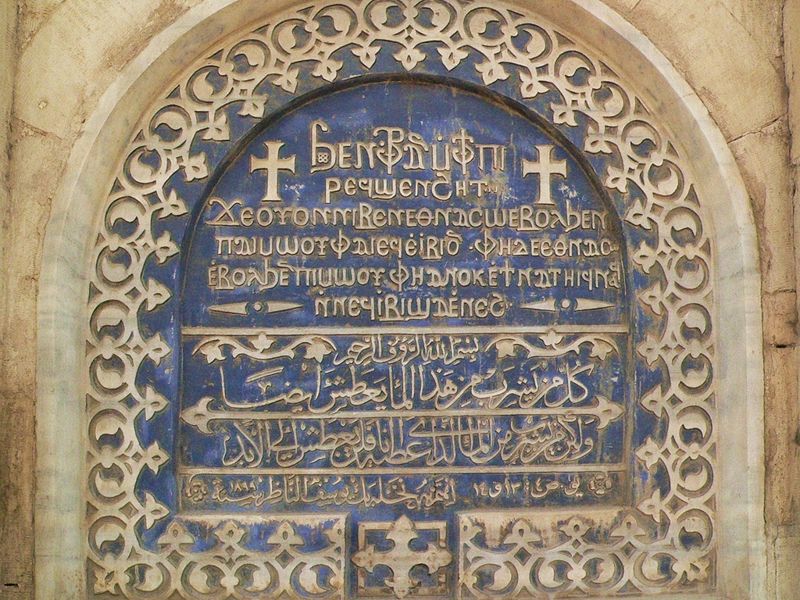 ϧⲉⲛ ⲫⲣⲁⲛ ⲙ̀ⲫϯ ⲡⲓ
ⲣⲉϥϣⲉⲛϩⲏⲧ
ϫⲉ ⲟⲩⲟⲛ ⲛⲓⲃⲉⲛ ⲉⲑⲛⲁⲥⲱ ⲉⲃⲟⲗϧⲉⲛ
ⲡⲁⲓⲙⲱⲟⲩ ⲫⲁⲓ ⲉϥⲉ̀ⲓⲃⲓ ⲟⲛ ⲫⲏ ⲇⲉ ⲉⲑⲛⲁⲥⲱ
ⲉⲃⲟⲗϧⲉⲛ ⲡⲓⲙⲱⲟⲩ ⲫⲏ ⲁⲛⲟⲕ ⲉⲧⲛⲁⲧⲏⲓϥ ⲛⲁϥ
ⲛ̀ⲛⲉϥⲓⲃⲓ ϣⲁ ⲉⲛⲉϩ
بسم الله الرؤف الرحيم
كل من يشرب من هذا الماء يعطش ايضًا
ولكن من يشرب من الماء الذي اعطيه انا فلن يعطش الى الابد
يو ص ٤ : ١٣ و ١٤ اهتم به نخله بك يوسف الناظر سنة